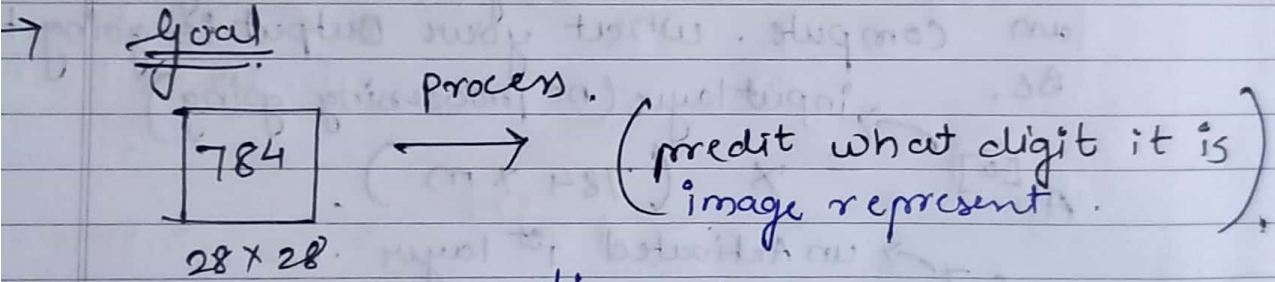 → Goal
process.
784 → (predit what digit it is
image represent.).
28 x 28.